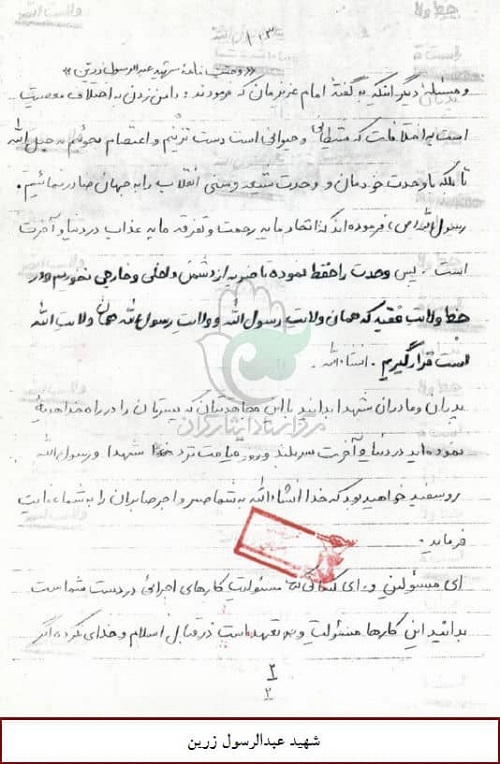 ۱۰۳
«وصیت نامهٔ شهید عبدالرسول زرین»
و مسئلهٔ دیگر اینکه به گفتهٔ امام عزیزمان که فرمودند: دامن زدن به اختلاف معصیت
است به اختلافات که شیطانی و حیوانی است دست نزنیم و اعتصام بجوئیم به حبل الله
تا بلکه با وحدت خودمان و وحدت شیعه و سنی انقلاب را به جهان صادر نمائیم.
رسول الله (ص) فرموده‌اند که اتحاد مایه رحمت و تفرقه مایه عذاب در دنیا و آخرت
است. پس وحدت را حفظ نموده تا ضربه از دشمن داخلی و خارجی نخوریم و در
خط ولایت فقیه که همان ولایت رسول الله و ولایت رسول الله همان ولایت الله
است قرار گیریم. انشاءالله.
پدران و مادران شهدا بدانید با این مجاهدتتان که پسرتان را در راه خدا هدیه
نموده‌اید در دنیا و آخرت سربلند و روز قیامت نزد خدا شهدا و رسول الله
روسفید خواهید بود که خدا انشاءالله به شما صبر و اجر صابران را به شما عنایت
فرماید.
ای مسئولین و ای کسانی که مسئولیت کارهای اجرائی در دست شماست
بدانید این کارها مسئولیت و تعهد است در قبال اسلام و خدای نکرده اگر
۲
۳
مرکز اسناد ایثارگران
شهید عبدالرسول زرین